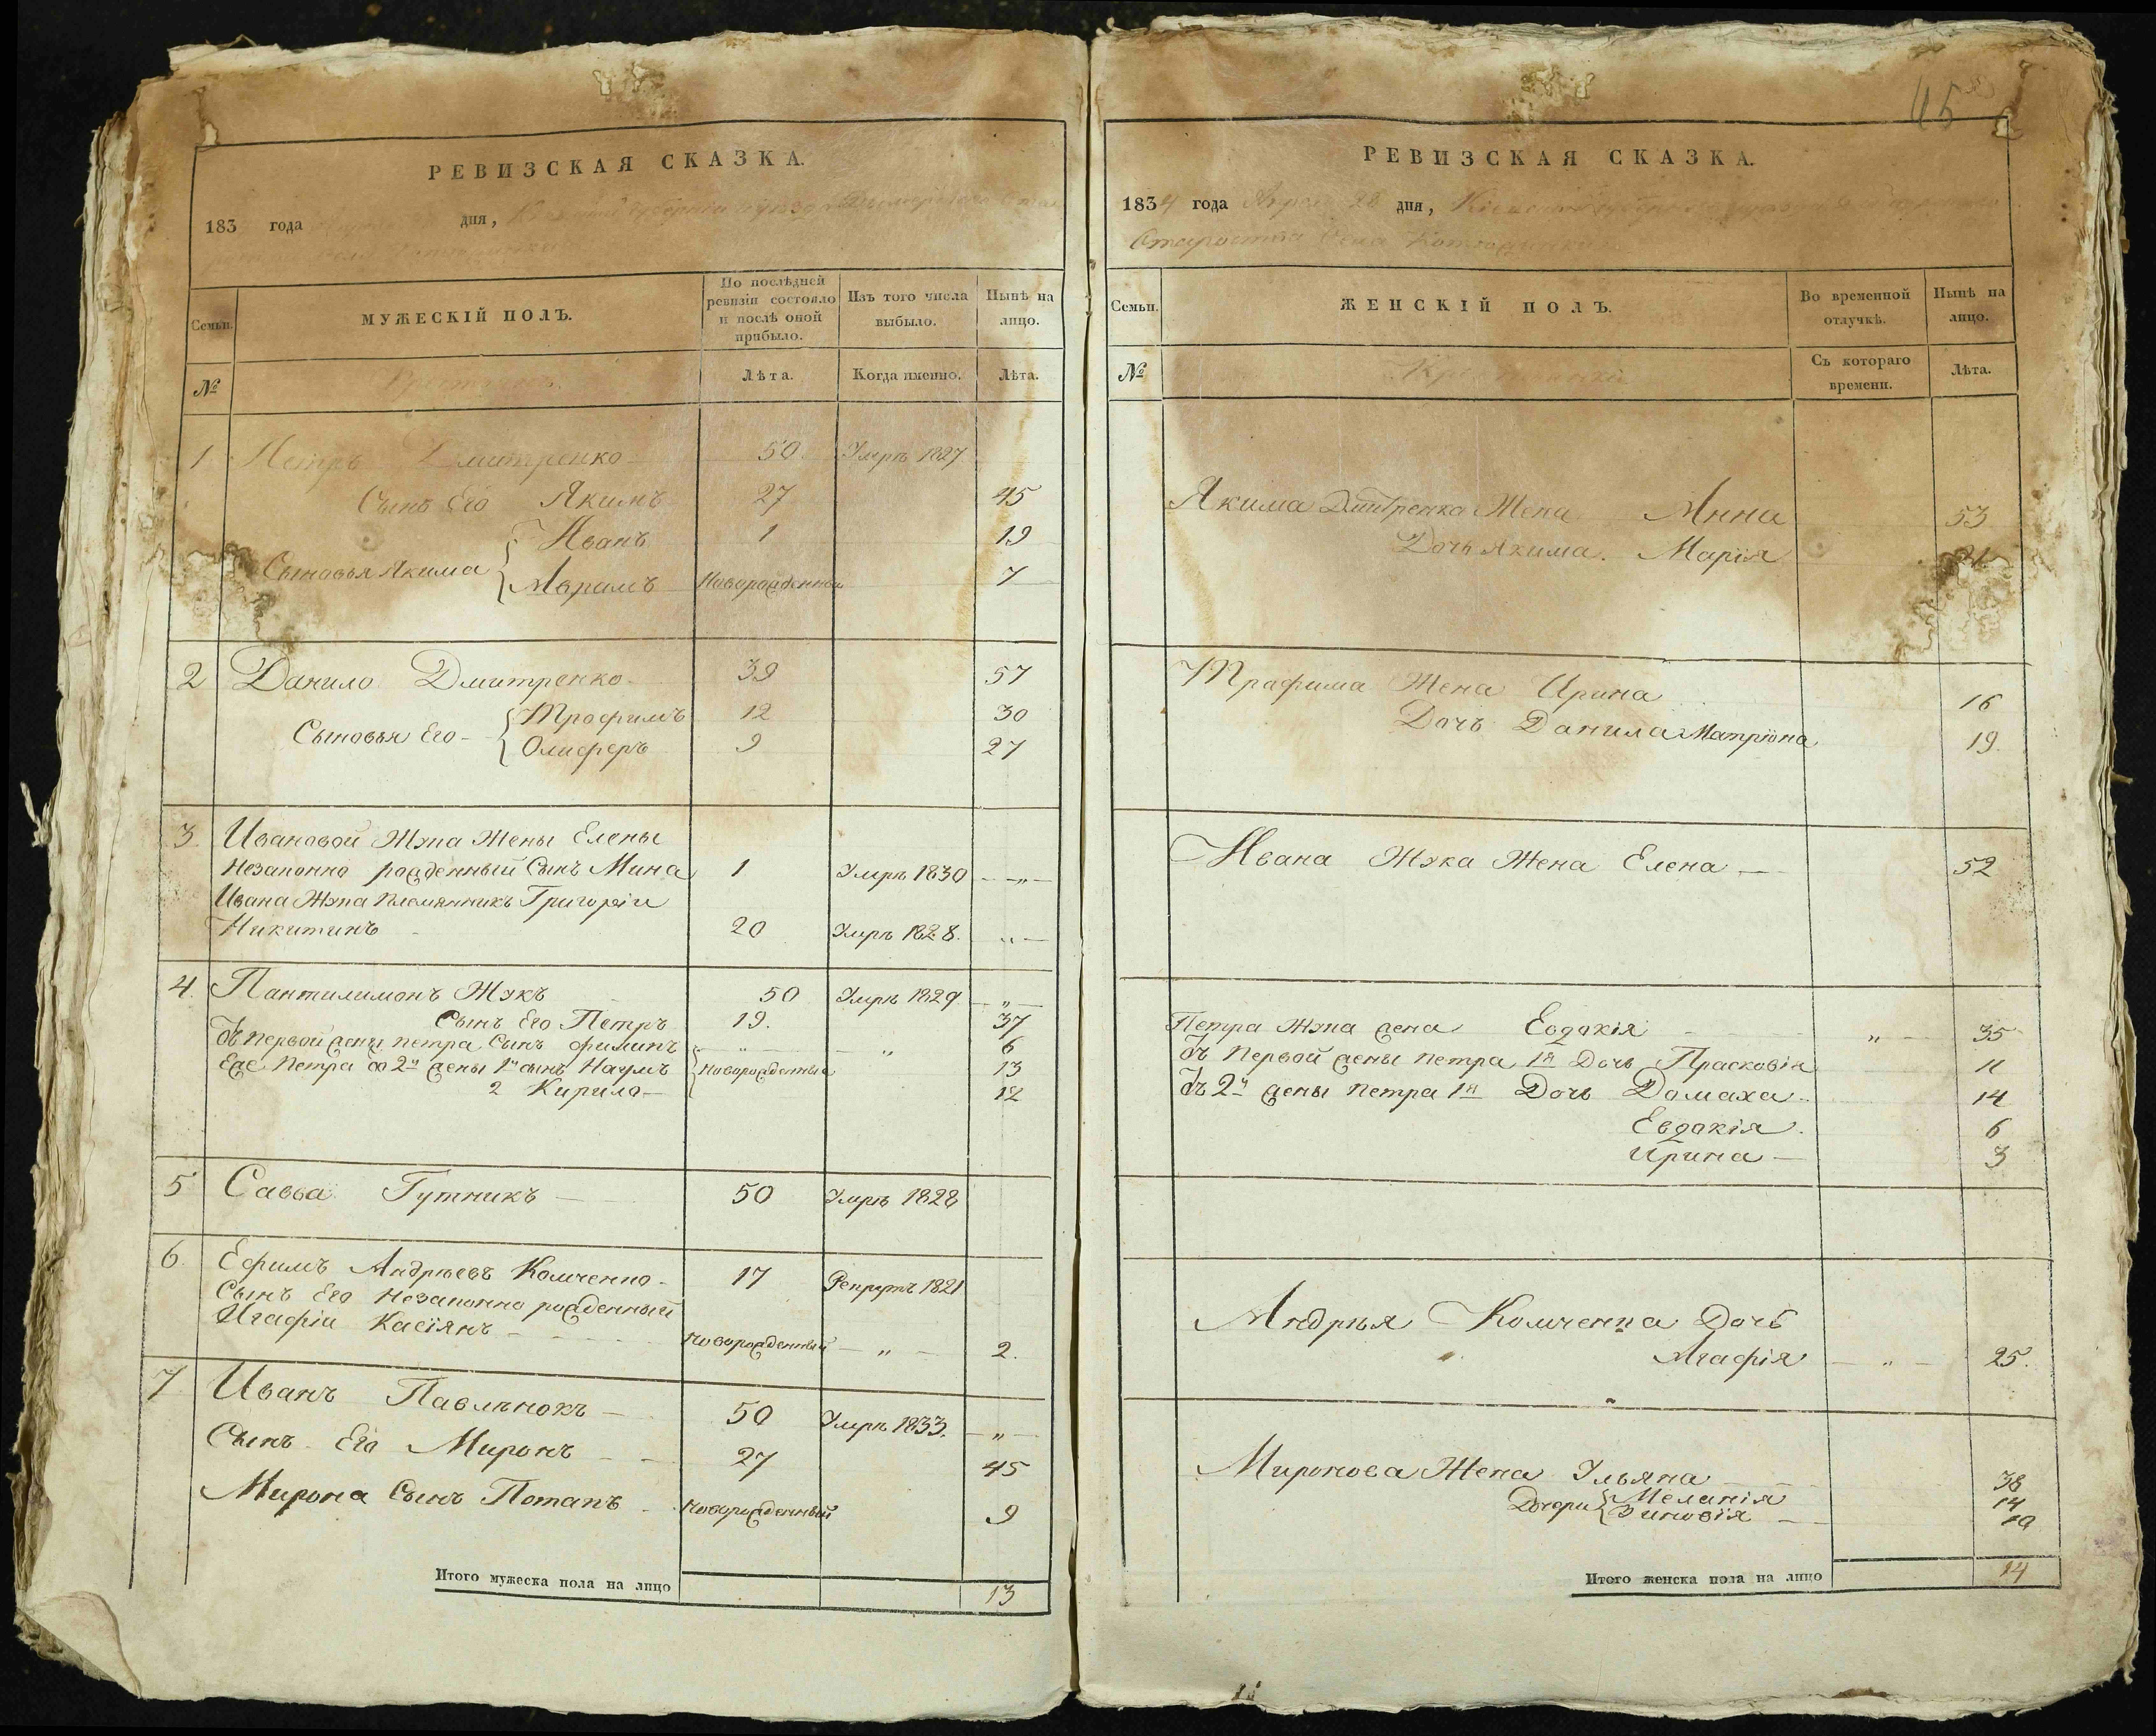 РЕВИЗСКАЯ СКАЗКА.
183 года дня, губерніи
МУЖЕСКІЙ ПОЛЪ.
Семьи.
По послѣдней ревизіи состояло и послѣ оной прибыло.
Изъ того числа выбыло.
Нынѣ на лицо.
№
Лѣта.
Когда именно.
Лѣта.
1 Петръ Дмитренко 50. Умръ 1827
Сынъ Его Якимъ 27 45
Сыновья Якима { Иванъ 1 19
Авраамъ Новорожденный 7
2 Данило Дмитренко 39 57
Сыновья Его { Трофимъ 12 30
Олиферъ 9 27
3. Ивановой Жука Жены Елены
Незаконно рожденный Сынъ Мина 1 Умръ 1830 — „ —
Ивана Жука Племянникъ Григорій
Никитинъ 20 Умръ 1828. „ —
4. Пантилимонъ Жукъ 50 Умръ 1829 — „ —
Сынъ Его Петръ 19. 37
Отъ первой жены Петра Сынъ Филипъ „ „ 6
Еже Петра отъ 2й жены 1й сынъ Наумъ { Новорожденные 13
2 Кирило — 12
5 Савва Гутникъ — 50 Умръ 1828
6. Ефимъ Андрѣевъ Комченко - 17 Рекрутъ 1821
Сынъ Его Незаконно рожденный
Агафіи Касіянъ - Новорожденный — „ — 2.
7 Иванъ Павлѣнокъ — 50 Умръ 1833. — „ —
Сынъ Его Миронъ 27 45
Мирона Сынъ Потапъ Новорожденный 9
Итого мужеска пола на лицо 13
45
РЕВИЗСКАЯ СКАЗКА.
1834 года Апреля 28 дня, Кіевской
Староства Села
Семьи.
ЖЕНСКІЙ ПОЛЪ.
Во временной отлучкѣ.
Нынѣ на лицо.
№
Съ котораго времени.
Лѣта.
Якима Дмитренка Жена Анна 53
Дочь Якима. Марія 21
Трафима Жена Ирина 16
Дочь Данила Матріона 19.
Ивана Жука Жена Елена — 52
Петра Жука жена Евдокія „ 35
Отъ Первой жены Петра 1я Дочь Прасковія 11
Отъ 2й жены Петра 1я Дочь Домаха 14
Евдокія. 6
Ирина — 3
Андрѣя Комченка Дочь
Агафія — „ — 25.
Миронова Жена Ульяна 38
Дочери { Меланія 14
Зиновія 10
Итого женска пола на лицо 14